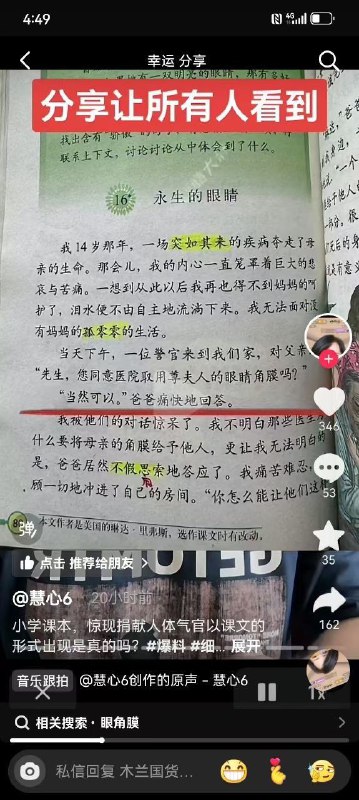 4:49
4G
幸运 分享
分享让所有人看到
找出含有“骄傲”的
联系上下文，讨论讨论从中体会到了什么。
16*
永生的眼睛
我14岁那年，一场突如其来的疾病夺走了母
亲的生命。那会儿，我的内心一直笼罩着巨大的悲
哀与苦痛。一想到从此以后我再也得不到妈妈的呵
护了，泪水便不由自主地流淌下来。我无法面对没
有妈妈的孤零零的生活。
当天下午，一位警官来到我们家，对父亲
“先生，您同意医院取用尊夫人的眼睛角膜吗？”
“当然可以。”爸爸痛快地回答。
我被他们的对话惊呆了。我不明白那些医生
什么要将母亲的角膜给予他人，更让我无法明白的
是，爸爸居然不假思索地答应了。我痛苦难忍，
顾一切地冲进了自己的房间。“你怎么能让他们这
本文作者是美国的琳达·里弗斯，选作课文时有改动。
弹
346
53
35
162
点击 推荐给朋友 >
@慧心6 · 20小时前
小学课本，惊现捐献人体气官以课文的
形式出现是真的吗？#爆料 #细... 展开
音乐跟拍 @慧心6创作的原声 - 慧心6
1x
相关搜索 · 眼角膜
私信回复 木兰国货...